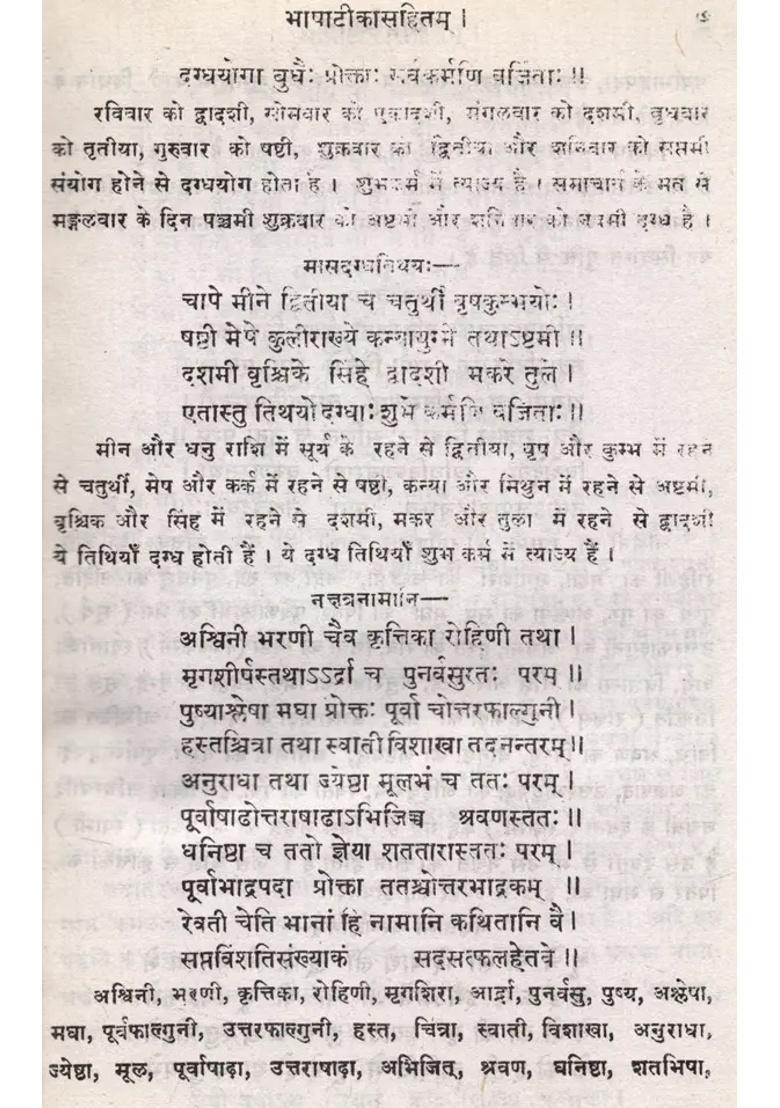 भाषाटीकासहितम् ।
दग्धयोगा बुधैः प्रोक्ताः सर्वकर्मणि वर्जिताः ॥
रविवार को द्वादशी, सोमवार को एकादशी, मंगलवार को दशमी, बुधवार
को तृतीया, गुरुवार को षष्ठी, शुक्रवार को द्वितीया और शनिवार को सप्तमी
संयोग होने से दग्धयोग होता है । शुभकर्म में त्याज्य है । समाचार्य के मत से
मङ्गलवार के दिन पञ्चमी शुक्रवार को अष्टमी और शनिवार को नवमी दग्ध है ।
मासदग्धतिथयः—
चापे मीने द्वितीया च चतुर्थी वृषकुम्भयोः ।
षष्ठी मेषे कुलीराख्ये कन्यायुग्मे तथाऽष्टमी ॥
दशमी वृश्चिके सिंहे द्वादशी मकरे तुले ।
एतास्तु तिथयो दग्धाः शुभे कर्मणि वर्जिताः ॥
मीन और धनु राशि में सूर्य के रहने से द्वितीया, वृष और कुम्भ में रहने
से चतुर्थी, मेष और कर्क में रहने से षष्ठी, कन्या और मिथुन में रहने से अष्टमी,
वृश्चिक और सिंह में रहने से दशमी, मकर और तुला में रहने से द्वादशी
ये तिथियाँ दग्ध होती हैं । ये दग्ध तिथियाँ शुभ कर्म में त्याज्य हैं ।
नक्षत्रनामानि—
अश्विनी भरणी चैव कृत्तिका रोहिणी तथा ।
मृगशीर्षस्तथाऽऽर्द्रा च पुनर्वसुरतः परम् ॥
पुष्याश्लेषा मघा प्रोक्तः पूर्वा चोत्तरफाल्गुनी ।
हस्तश्चित्रा तथा स्वाती विशाखा तदनन्तरम् ॥
अनुराधा तथा ज्येष्ठा मूलभं च ततः परम् ।
पूर्वाषाढोत्तराषाढाऽभिजिच्च श्रवणस्ततः ॥
धनिष्ठा च ततो ज्ञेया शततारास्ततः परम् ।
पूर्वाभाद्रपदा प्रोक्ता ततश्चोत्तरभाद्रकम् ॥
रेवती चेति भानां हि नामानि कथितानि वै ।
सप्तविंशतिसंख्याकं सदसत्फलहेतवे ॥
अश्विनी, भरणी, कृत्तिका, रोहिणी, मृगशिरा, आर्द्रा, पुनर्वसु, पुष्य, अश्लेषा,
मघा, पूर्वफाल्गुनी, उत्तरफाल्गुनी, हस्त, चित्रा, स्वाती, विशाखा, अनुराधा,
ज्येष्ठा, मूल, पूर्वाषाढ़ा, उत्तराषाढ़ा, अभिजित्, श्रवण, धनिष्ठा, शतभिषा,